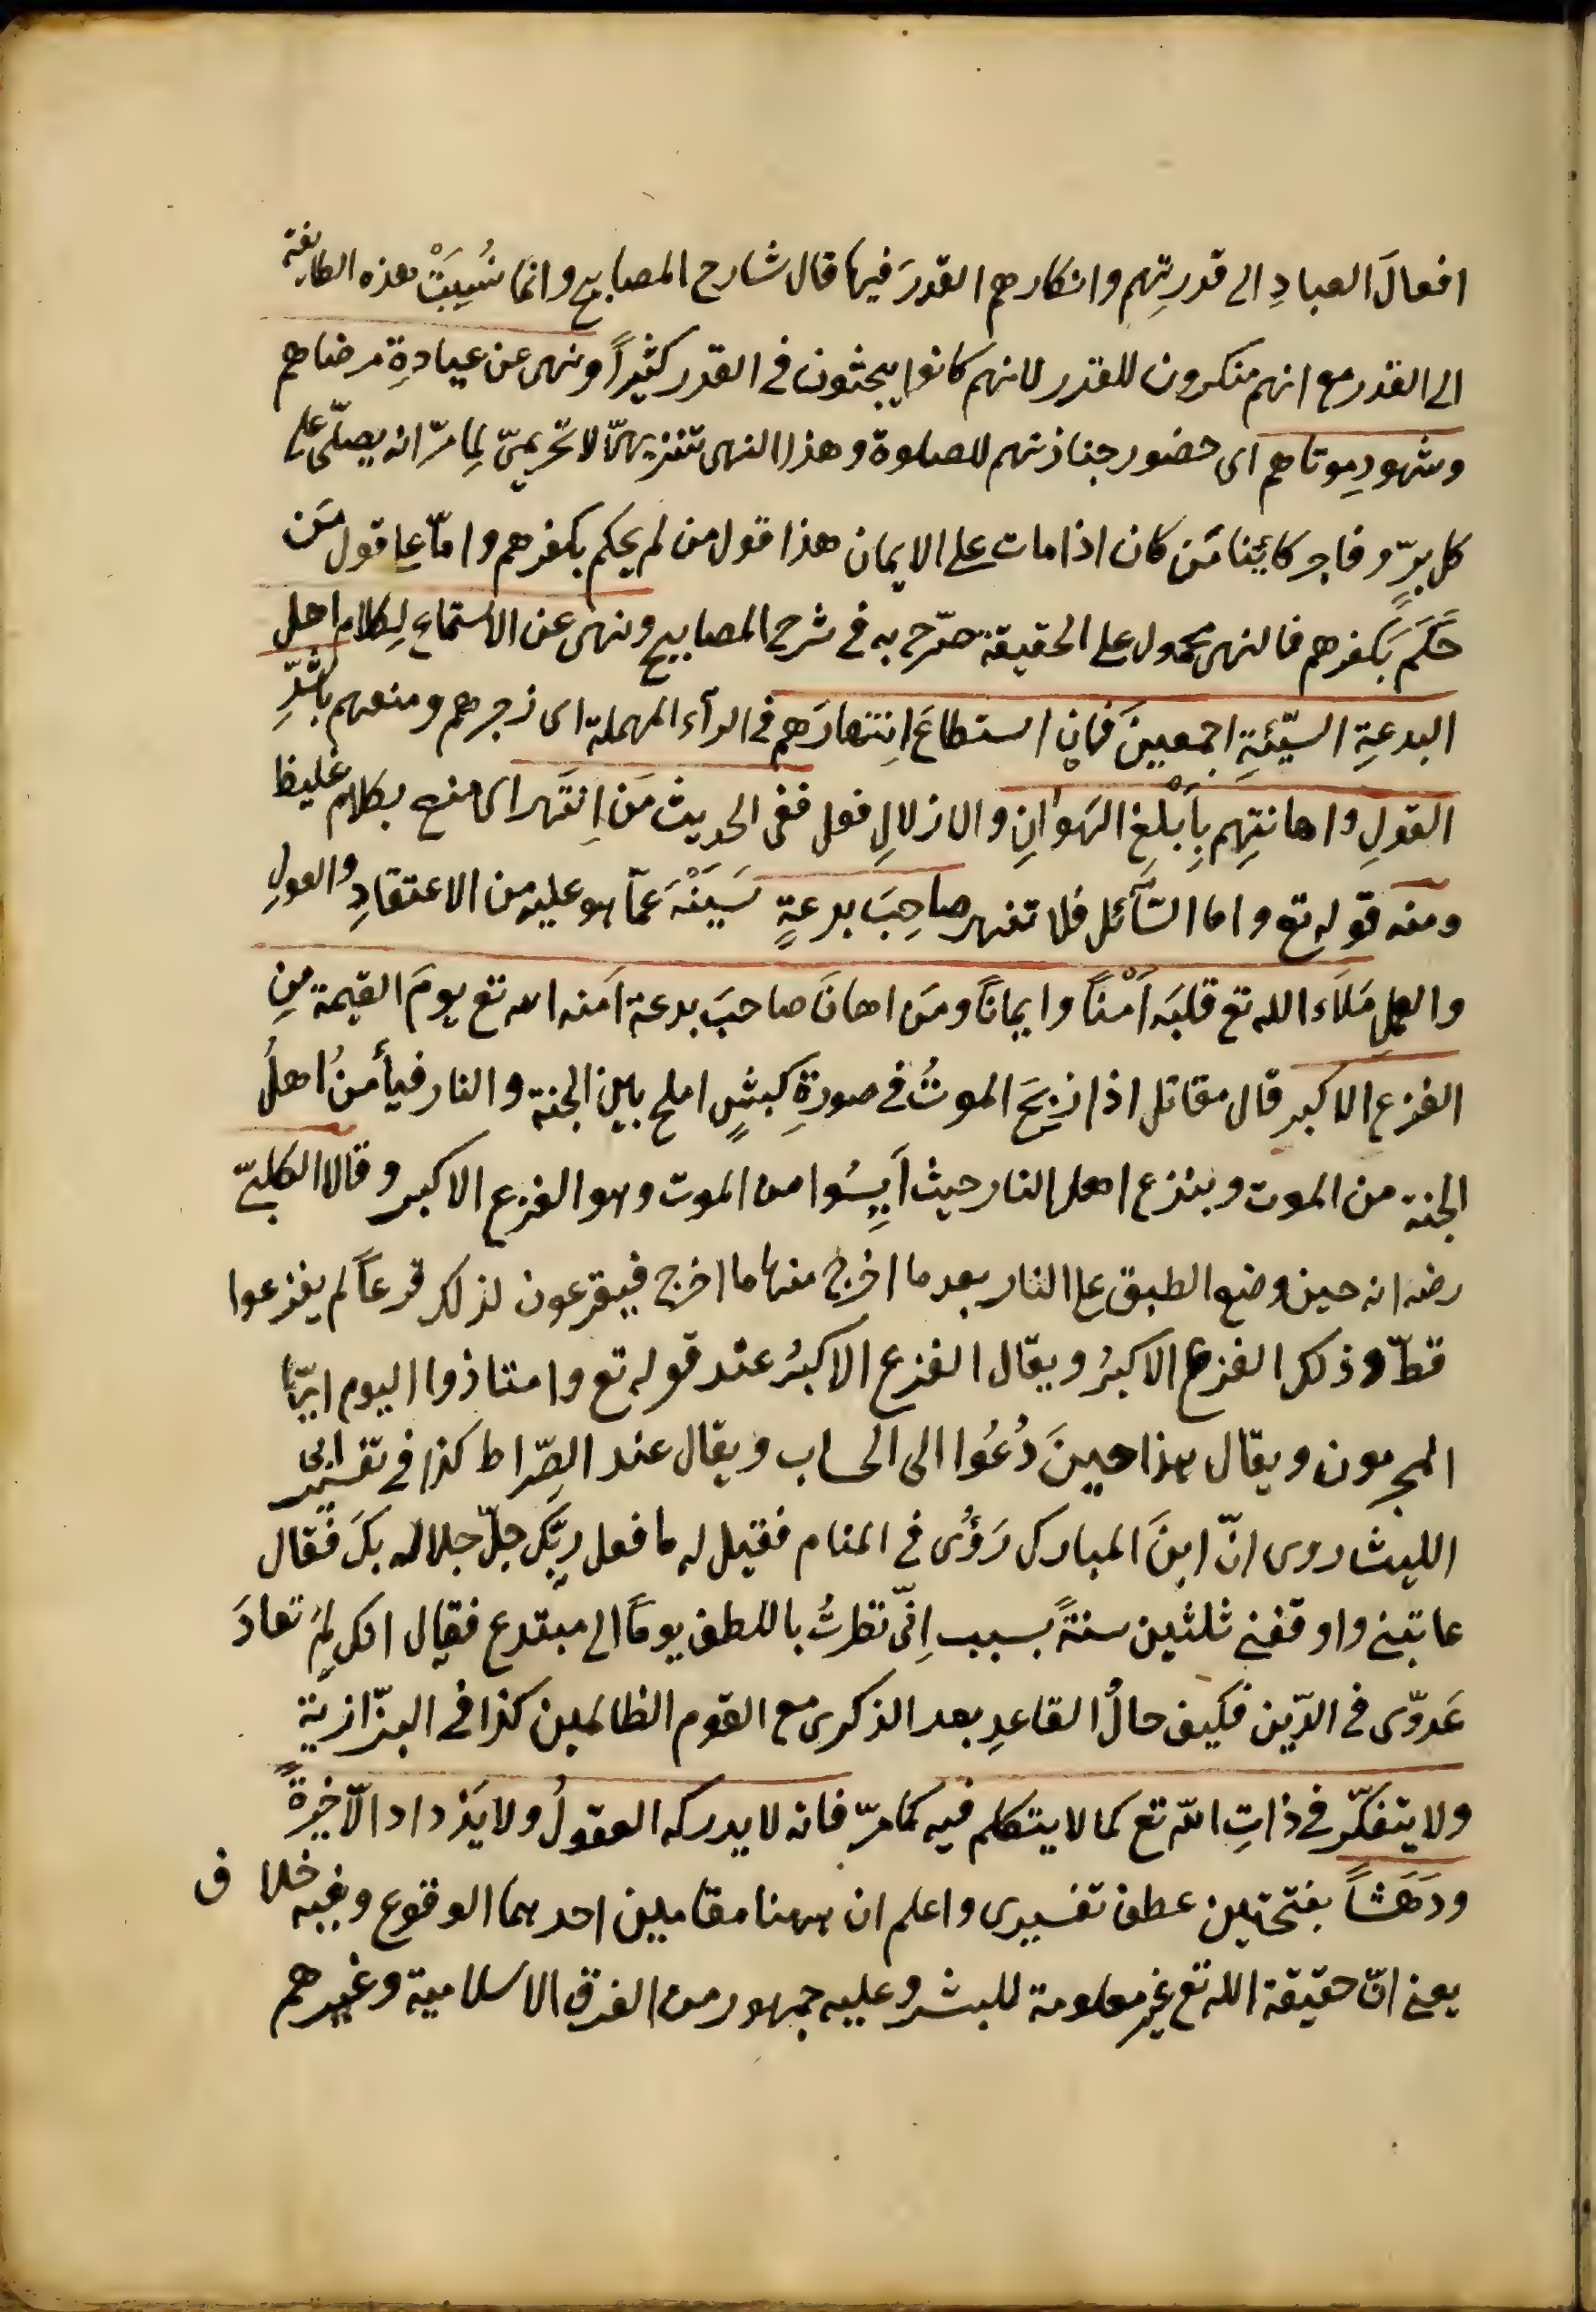 افعالَ العبادِ الى قدرتِهم وانكارهم القدرَ فيها قال شارح المصابيح وانما نُسِبَتْ هذه الطايفة
الى القدر مع انهم منكرون للقدر لانهم كانوا يبحثون فى القدر كثيراً ونهى عن عيادةِ مرضاهم
وشهودِ موتاهم اى حضور جنازتهم للصلوة وهذا النهى تنزيهىّ لا تحريمىّ لِما مرّ انه يصلّى على
كل برٍّ وفاجر كائنا مَن كان اذا مات على الايمان هذا قول من لم يحكم بكفرهم وامّا على قول مَن
حَكَمَ بكفرهم فالنهى محمول على الحقيقة صرّح به فى شرح المصابيح ونهى عن الاستماع لِكلام اهل
البدعةِ السيّئةِ اجمعينَ فإن استطاعَ اِنتهارَهم فى الرآء المهملة اى زجرهم ومنعهم باشدِّ
القولِ واهانتِهِم بِاَبْلغِ الهَوانِ والاذلالِ فعل ففى الحديث مَن اِنتَهر اى منع بكلام غليظ
ومنه قوله تع واما السّآئل فلا تنهر صاحِبَ بدعةٍ سَيئة عمّا هو عليه من الاعتقادِ والعولِ
والعمل مَلَاَء الله تع قلبَه اَمْناً وايماناً ومَن اهانَ صاحبَ بدعة اَمنه الله تع يومَ القيمة مِن
الفزع الاكبر قال مقاتل اذا ذبِحَ الموتُ فى صورةِ كبشٍ املح بين الجنة والنار فيأمنُ اهلُ
الجنة من الموت ويفزع اهل النار حيث اَيِسُوا من الموت وهو الفزع الاكبر وقال الكلبىّ
رضه انه حين وضع الطبق على النار بعد ما اخرج منها ما اخرج فيفزعون لذلك فزعاً لم يفزعوا
قطّ وذلك الفزع الاكبرُ ويقال الفزع الاكبرُ عند قوله تع وامتازوا اليوم ايّها
المجرمون ويقال هذا حينَ دُعُوا الى الحساب ويقال عند الصِّراط كذا فى تفسير ابى
الليث روى انّ ابنَ المبارك رَؤُى فى المنام فقيل له ما فعل ربّك جلّ جلاله بكَ فقال
عاتبنى واوقفنى ثلثين سنةً بسبب اِنّى نظرتُ باللطف يوماً الى مبتدع فقال انك لَم تعادَ
عَدوّى فى الدّين فكيف حالُ القاعدِ بعد الذكرى مع القوم الظالمين كذا فى البزّازية
ولا يتفكّر فى ذاتِ اللّه تع كما لا يتكلم فيه كما مرّ فانه لا يدركه العقولُ ولا يَزداد الّا حَيرةً
ودَهَشاً بفتحتين عطف تفسيرى واعلم ان ههنا مقامين احدهما الوقوع وفيه خلاف
يعنى انّ حقيقة الله تع غير معلومة للبشر وعليه جمهور من الفرق الاسلامية وغيرهم